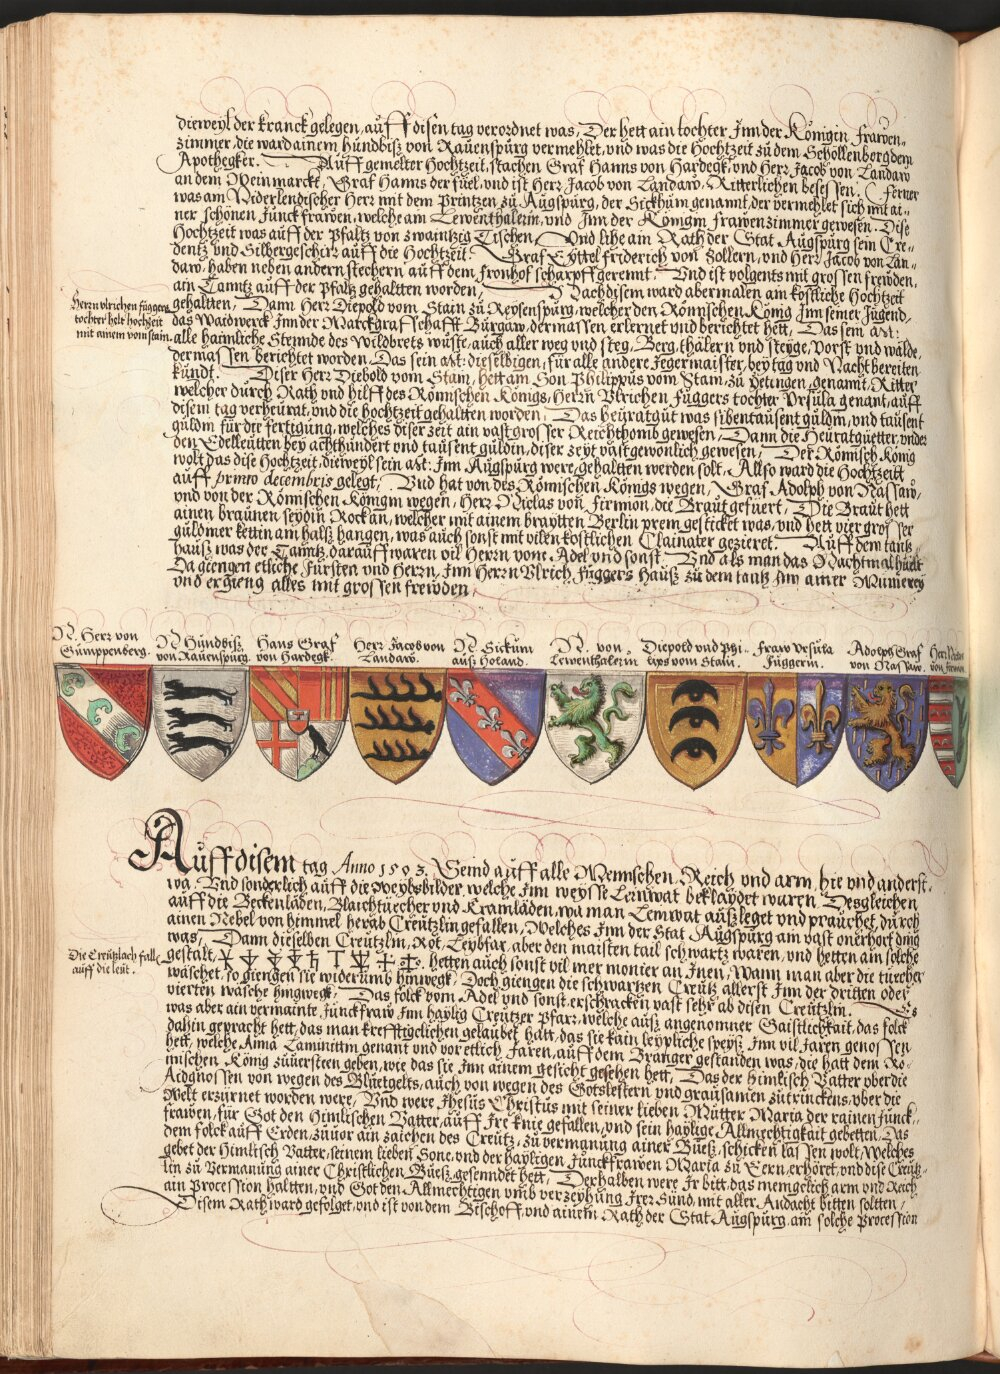 dieweyl der kranck gelegen, auff disen tag verordnet was, Der hett ain tochter Jnn der Königin frawen-
zimmer, die ward ainem hundbiß von Rauenspurg vermehlet, vnd was die Hochzeit zu dem Schollenberg dem
Apothegker. Auff gemelter Hochzeit, stachen Graf Hanns von Hardegk, vnd Herr Jacob von Landaw
an dem Weinmarckt, Graf Hanns der fuel, vnd ist Herr Jacob von Landaw, Ritterlichen besessen. Ferner
was am Niderlendischer Herr mit dem Printzen zu Augspurg, der Sickhum genannt, der vermehlet sich mit ai-
ner schönen Junckfrawen, welche am Lewenthalerin, vnd Jnn der Königin frawenzimmer gewesen. Dise
Hochzeit was auff der Pfaltz von zwaintzig Tischen, Vnd lihe ain Rath der Stat Augspurg sein Cre-
dentz vnd Silbergeschirr auff die Hochzeit. Graf Eyttel friderich von Zollern, vnd Herr Jacob von Lan-
daw, haben neben andern stechern auff dem fronhof scharpff gerennt. Vnd ist volgents mit grossen frewden,
ain Tanntz auff der Pfaltz gehaltten worden, Nachdisem ward abermalen am kostliche Hochzeit
gehaltten, Dann Herr Diepold vom Stain zu Reysenspurg, welcher den Römischen König Jnn seiner Jugend,
das Waidwerck Jnn der Marckgraffschafft Burgaw, dermassen erlernet vnd berichtet hett, Das sein Mt:
alle haimliche Stennde des Wildbrets wuste, auch aller weg vnd steg, Berg, thälern vnd steyge, Vorst vnd wälde,
dermassen berichtet worden, Das sein Mt: dieselbigen, für alle andere Jegermaister, bey tag vnd Nacht bereiten
kundt. Diser Herr Diebold vom Stain, hett am Son Philippus vom Stain, zu Yetingen, genannt, Ritter
welcher durch Rath vnd hilff des Römischen Königs, Herrn Vlrichen Fuggers tochter Vrsula genant, auff
disem tag verheurat, vnd die hochzeit gehaltten worden, Das heyratgut was sibentausent guldin, vnd tausent
guldin für die fertigung, welches diser zeit ain vast grosser Reichthomb gewesen, Dann die Heuratguetter, vnder
den Edelleutten bey achthundert vnd tausent guldin, diser zeyt vast gewonlich gewesen, Der Römisch König
wolt das dise Hochzeit, dieweyl sein Mt: Jnn Augspurg were, gehaltten werden solt, Allso ward die Hochzeitt
auff primo decembris gelegt, Vnd hat von des Römischen Königs wegen, Graf Adolph von Nassaw,
vnd von der Römischen Königin wegen, Herr Niclas von Firmion, die Braut gefuert, Die Braut hett
ainen braunen seydin Rock an, welcher mit ainem braytten Berlin prem gesticket was, vnd hett vier grosser
guldiner kettin am halß hangen, was auch sonst mit vilen kostlichen Clainater gezieret. Auff dem tantz
hauß was der Tanntz, darauff waren vil Herrn vom Adel vnd sonst. Vnd als man das Nachtmal hielt
Da giengen etliche Fürsten vnd Herrn, Jnn Herrn Vlrich Fuggers Hauß zu dem tantz Jnn ainer Mumerey
vnd ergieng alles mit grossen frewden,
Herrn vlrichen fuggers
tochter helt hochzeit
mit ainem vom stain.
N. Herr von
Gumppenberg.
N. Hundbiß
von Rauenspurg.
Hans Graf
von Hardegk.
Herr Jacob von
Landaw.
N. Sickum
auß Holand.
N. von
Lewenthalerin
Diepold vnd Phi-
lips vom Stain.
Fraw Vrsula
Fuggerin.
Adolph Graf
von Nassaw.
Herr Niclas
von firmion
Auff disem tag Anno 1503. Seind auff alle Mennschen, Reich vnd arm, hie vnd anderst-
wa. Vnd sonderlich auff die weybsbilder, welche Jnn weysse Leinwat beklaydet waren, Desgleichen
auff die Beckenläden, Blaichtuecher vnd Kramläden, wa man Leinwat außleget vnd prauchet, durch
ainen Nebel von himmel herab Creutzlin gefallen, Welches Jnn der Stat Augspurg am vast vnerhört ding
was, Dann dieselben Creutzlin, Rot, Leybfar, aber den maisten tail schwartz waren, vnd hetten ain solche
gestalt, hetten auch sonst vil mer monier an Jnen, Wann man aber die tuecher
wäschet, so giengen sie widerumb hinwegk, Doch giengen die schwartzen Creutz allerst Jnn der dritten oder
vierten wäsche hingwegk, Das folck vom Adel vnd sonst, erschracken vast sehr ab disen Creutzlin. Es
was aber ain vermainte Junckfraw Jnn haylig Creutzer Pfarr, welche auß angenomner Gaistlichkait, das folck
dahin gepracht hett, das man krefftigclichen gelaubet hatt, das sie kain leypliche speyß Jnn vil Jaren genossen
hett, welche Anna Laminittin genant vnd vor etlich Jaren, auff dem Branger gestanden was, die hatt dem Rö-
mischen König zuuersteen geben, wie das sie Jnn ainem gesicht gesehen hett, Das der himlisch Vatter vber die
Aidgnossen von wegen des Bluetgelts, auch von wegen des Gotslestern vnd grausamen zutrinckens, vber die
Welt erzurnet worden were, Vnd were Jhesus Christus mit seiner lieben Mutter Maria der rainen Junck-
frawen, für Got den Himlischen Vatter, auff Jre knie gefallen, vnd sein haylige Allmechtigkait gebetten, Das
dem folck auff Erden, zuuor ain zaichen des Creutz, zu vermanung ainer Bueß, schicken lassen wolt, Welches
gebet der Himlisch Vatter, seinem lieben Sone, vnd der hayligen Junckfrawen Maria zu Eern, erhöret, vnd dise Creutz-
lin zu Vermanung ainer Christlichen Bueß, gesenndet hett, Derhalben were Jr bitt, das mengclich arm vnd Reich
ain Procession haltten, vnd Got den Allmechtigen vmb verzeyhung Jrer Sund, mit aller Andacht bitten soltten,
Disem Rath ward gefolget, vnd ist von dem Bischoff, vnd ainem Rath der Stat Augspurg, am solche Procession
Die Creützlach falle
auff die leüt.